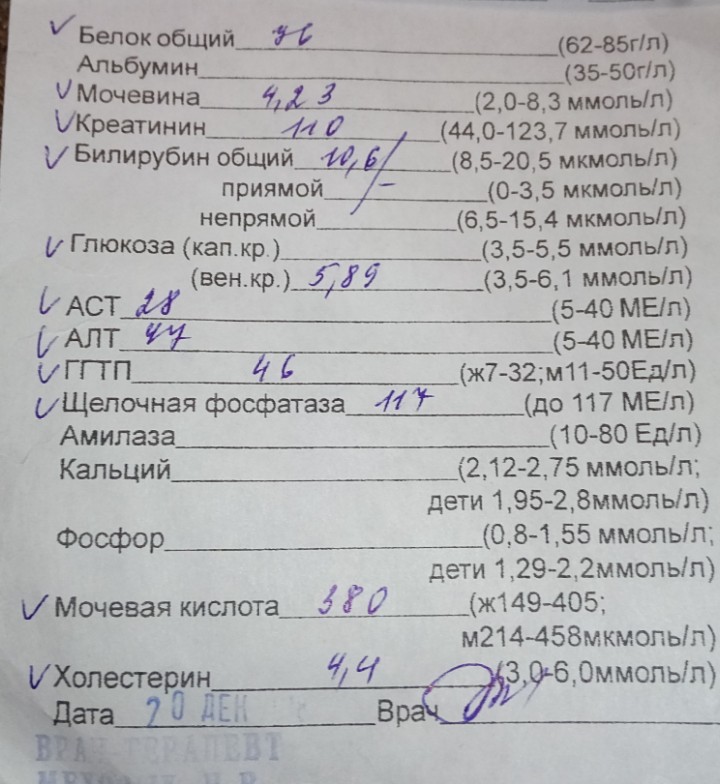 Белок общий 76 (62-85г/л)
Альбумин (35-50г/л)
Мочевина 4,23 (2,0-8,3 ммоль/л)
Креатинин 110 (44,0-123,7 ммоль/л)
Билирубин общий 10,6 (8,5-20,5 мкмоль/л)
приямой - (0-3,5 мкмоль/л)
непрямой (6,5-15,4 мкмоль/л)
Глюкоза (кап.кр.) (3,5-5,5 ммоль/л)
(вен.кр.) 5,89 (3,5-6,1 ммоль/л)
АСТ 28 (5-40 МЕ/л)
АЛТ 47 (5-40 МЕ/л)
ГГТП 46 (ж7-32;м11-50Ед/л)
Щелочная фосфатаза 117 (до 117 МЕ/л)
Амилаза (10-80 Ед/л)
Кальций (2,12-2,75 ммоль/л;
дети 1,95-2,8ммоль/л)
Фосфор (0,8-1,55 ммоль/л;
дети 1,29-2,2ммоль/л)
Мочевая кислота 380 (ж149-405;
м214-458мкмоль/л)
Холестерин 4,4 (3,0-6,0ммоль/л)
Дата 20 ДЕК Врач
ВРАЧ ТЕРАПЕВТ